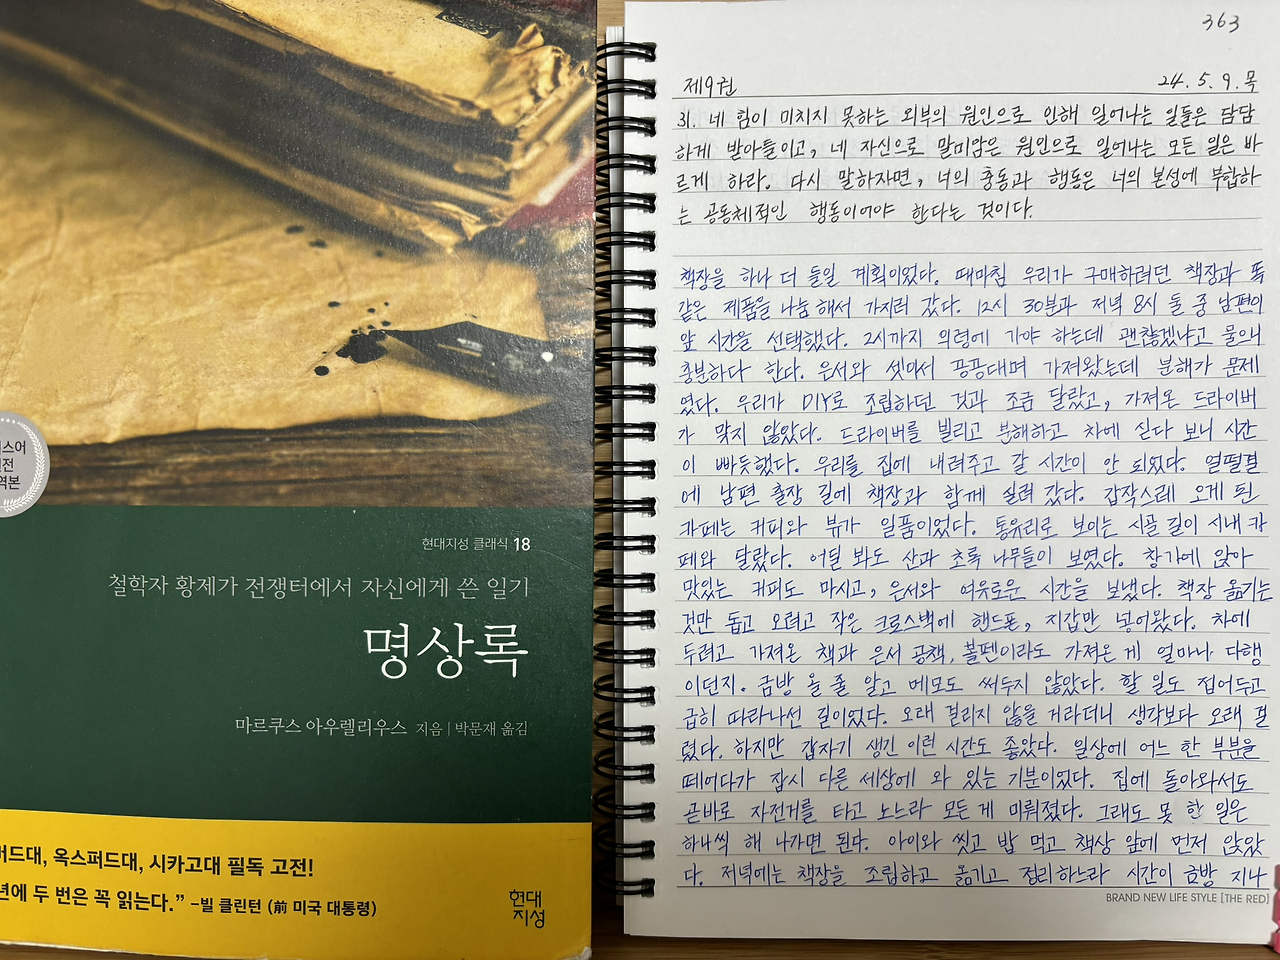 스어
전
역본
현대지성 클래식 18
철학자 황제가 전쟁터에서 자신에게 쓴 일기
명상록
마르쿠스 아우렐리우스 지음 | 박문재 옮김
버드대, 옥스퍼드대, 시카고대 필독 고전!
년에 두 번은 꼭 읽는다.” –빌 클린턴 (前 미국 대통령)
현대
지성
363
제9권 24. 5. 9. 목
31. 네 힘이 미치지 못하는 외부의 원인으로 인해 일어나는 일들은 담담
하게 받아들이고, 네 자신으로 말미암은 원인으로 일어나는 모든 일은 바
르게 하라. 다시 말하자면, 너의 충동과 행동은 너의 본성에 부합하
는 공동체적인 행동이어야 한다는 것이다.
책장을 하나 더 들일 계획이었다. 때마침 우리가 구매하려던 책장과 똑
같은 제품을 나눔 해서 가지러 갔다. 12시 30분과 저녁 8시 둘 중 남편이
앞 시간을 선택했다. 2시까지 의령에 가야 하는데 괜찮겠냐고 물으니
충분하다 한다. 은서와 셋이서 끙끙대며 가져왔는데 분해가 문제
였다. 우리가 DIY로 조립하던 것과 조금 달랐고, 가져온 드라이버
가 맞지 않았다. 드라이버를 빌리고 분해하고 차에 싣다 보니 시간
이 빠듯했다. 우리를 집에 내려주고 갈 시간이 안 되었다. 얼떨결
에 남편 출장 길에 책장과 함께 실려 갔다. 갑작스레 오게 된
카페는 커피와 뷰가 일품이었다. 통유리로 보이는 시골 길이 시내 카
페와 달랐다. 어딜 봐도 산과 초록 나무들이 보였다. 창가에 앉아
맛있는 커피도 마시고, 은서와 여유로운 시간을 보냈다. 책장 옮기는
것만 돕고 오려고 작은 크로스백에 핸드폰, 지갑만 넣어왔다. 차에
두려고 가져온 책과 은서 공책, 볼펜이라도 가져온 게 얼마나 다행
이던지. 금방 올 줄 알고 메모도 써두지 않았다. 할 일도 접어두고
급히 따라나선 길이었다. 오래 걸리지 않을 거라더니 생각보다 오래 걸
렸다. 하지만 갑자기 생긴 이런 시간도 좋았다. 일상에 어느 한 부분을
떼어다가 잠시 다른 세상에 와 있는 기분이었다. 집에 돌아와서도
곧바로 자전거를 타고 노느라 모든 게 미뤄졌다. 그래도 못 한 일은
하나씩 해 나가면 된다. 아이와 씻고 밥 먹고 책상 앞에 먼저 앉았
다. 저녁에는 책장을 조립하고 옮기고 정리하느라 시간이 금방 지나
BRAND NEW LIFE STYLE [THE RED]